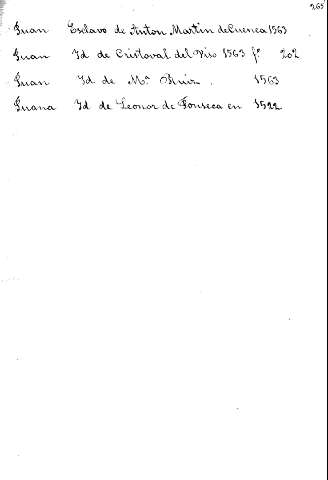 265
Juan Esclavo de Anton Martin de Cuenca 1563
Juan Id de Cristoval del Viso 1563 fº 202
Juan Id de Mª Ruiz. 1563
Juana Id de Leonor de Fonseca en 1522